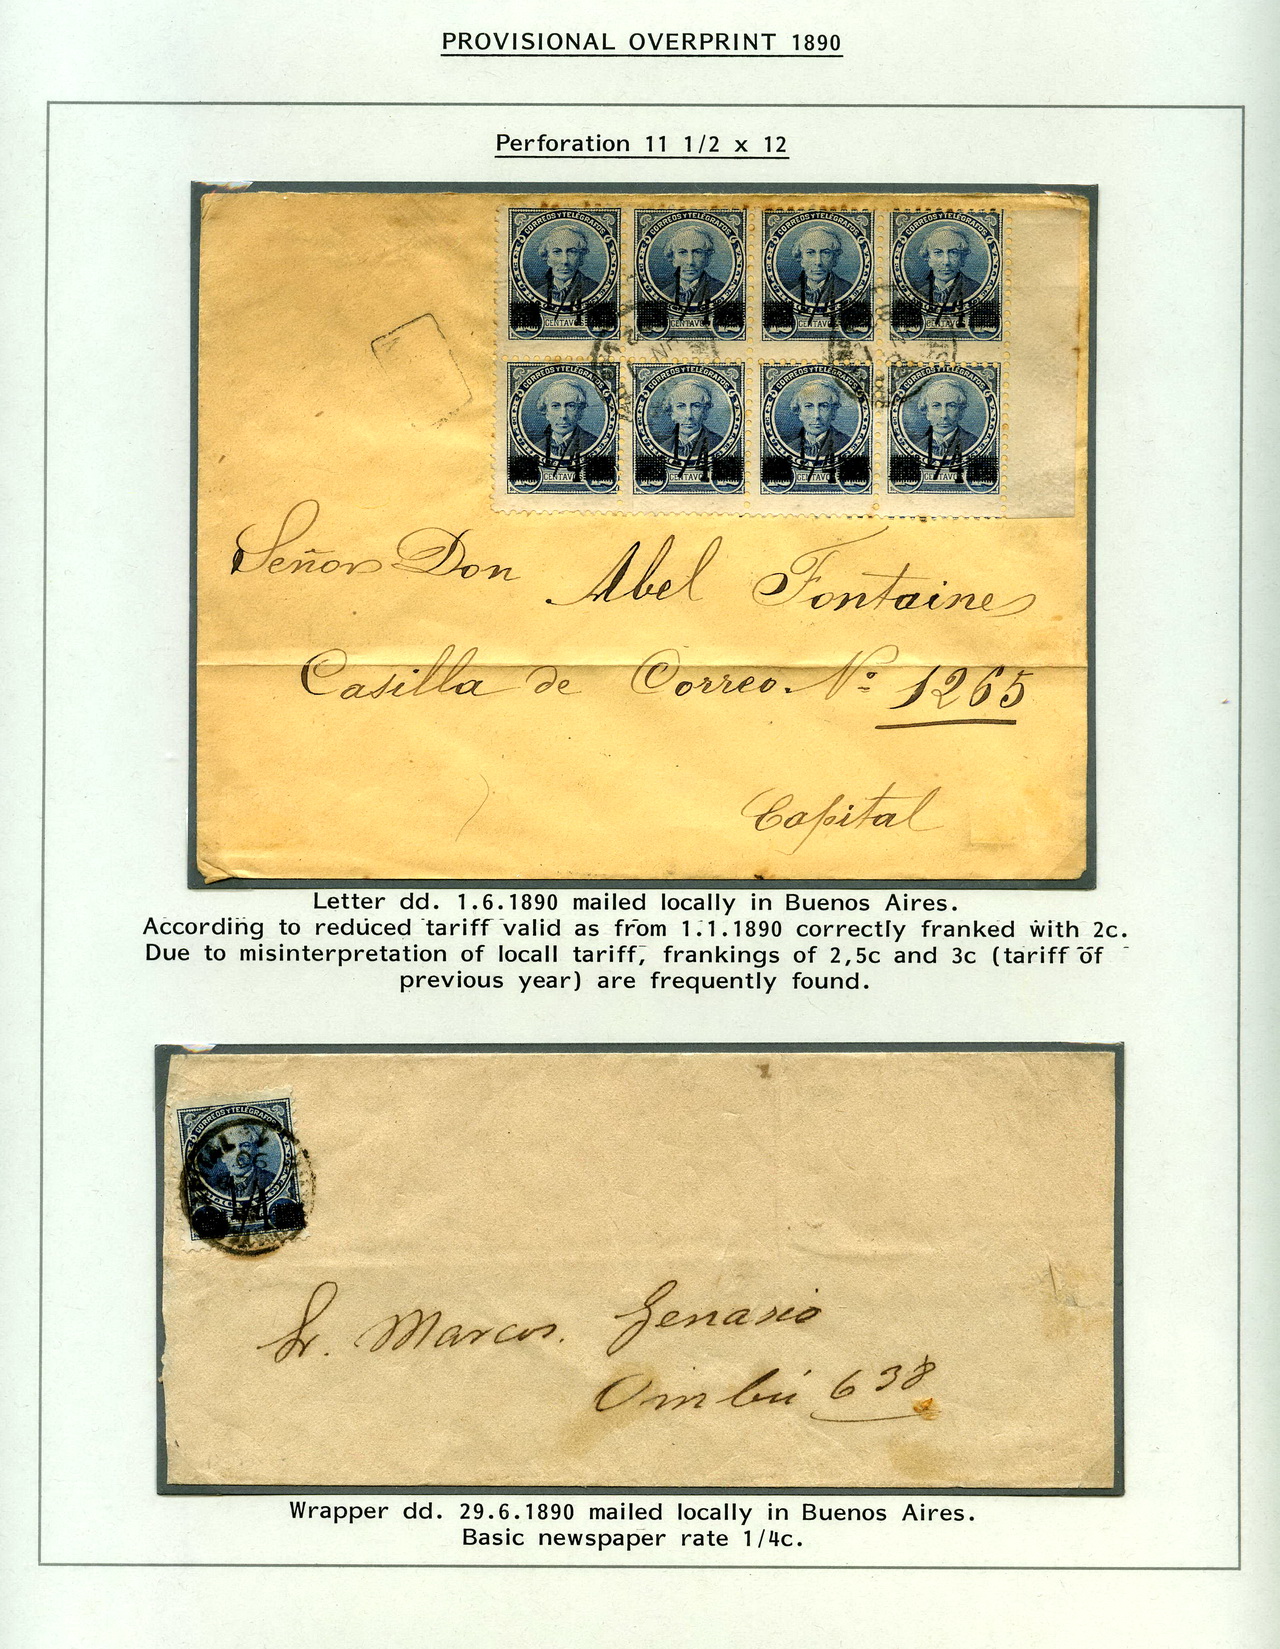 PROVISIONAL OVERPRINT 1890
Perforation 11 1/2 x 12
CORREOS Y TELÉGRAFOS CORREOS Y TELÉGRAFOS CORREOS Y TELÉGRAFOS CORREOS Y TELÉGRAFOS
1/4 1/4 1/4 1/4
CENTAVOS CENTAVOS CENTAVOS CENTAVOS
CORREOS Y TELÉGRAFOS CORREOS Y TELÉGRAFOS CORREOS Y TELÉGRAFOS CORREOS Y TELÉGRAFOS
1/4 1/4 1/4 1/4
CENTAVOS CENTAVOS CENTAVOS CENTAVOS
Señor Don Abel Fontaine
Casilla de Correo. Nº 1265
Capital
Letter dd. 1.6.1890 mailed locally in Buenos Aires.
According to reduced tariff valid as from 1.1.1890 correctly franked with 2c.
Due to misinterpretation of locall tariff, frankings of 2,5c and 3c (tariff of
previous year) are frequently found.
CORREOS Y TELÉGRAFOS
1/4
Sr. Marcos. Genasio
Ombú 638
Wrapper dd. 29.6.1890 mailed locally in Buenos Aires.
Basic newspaper rate 1/4c.